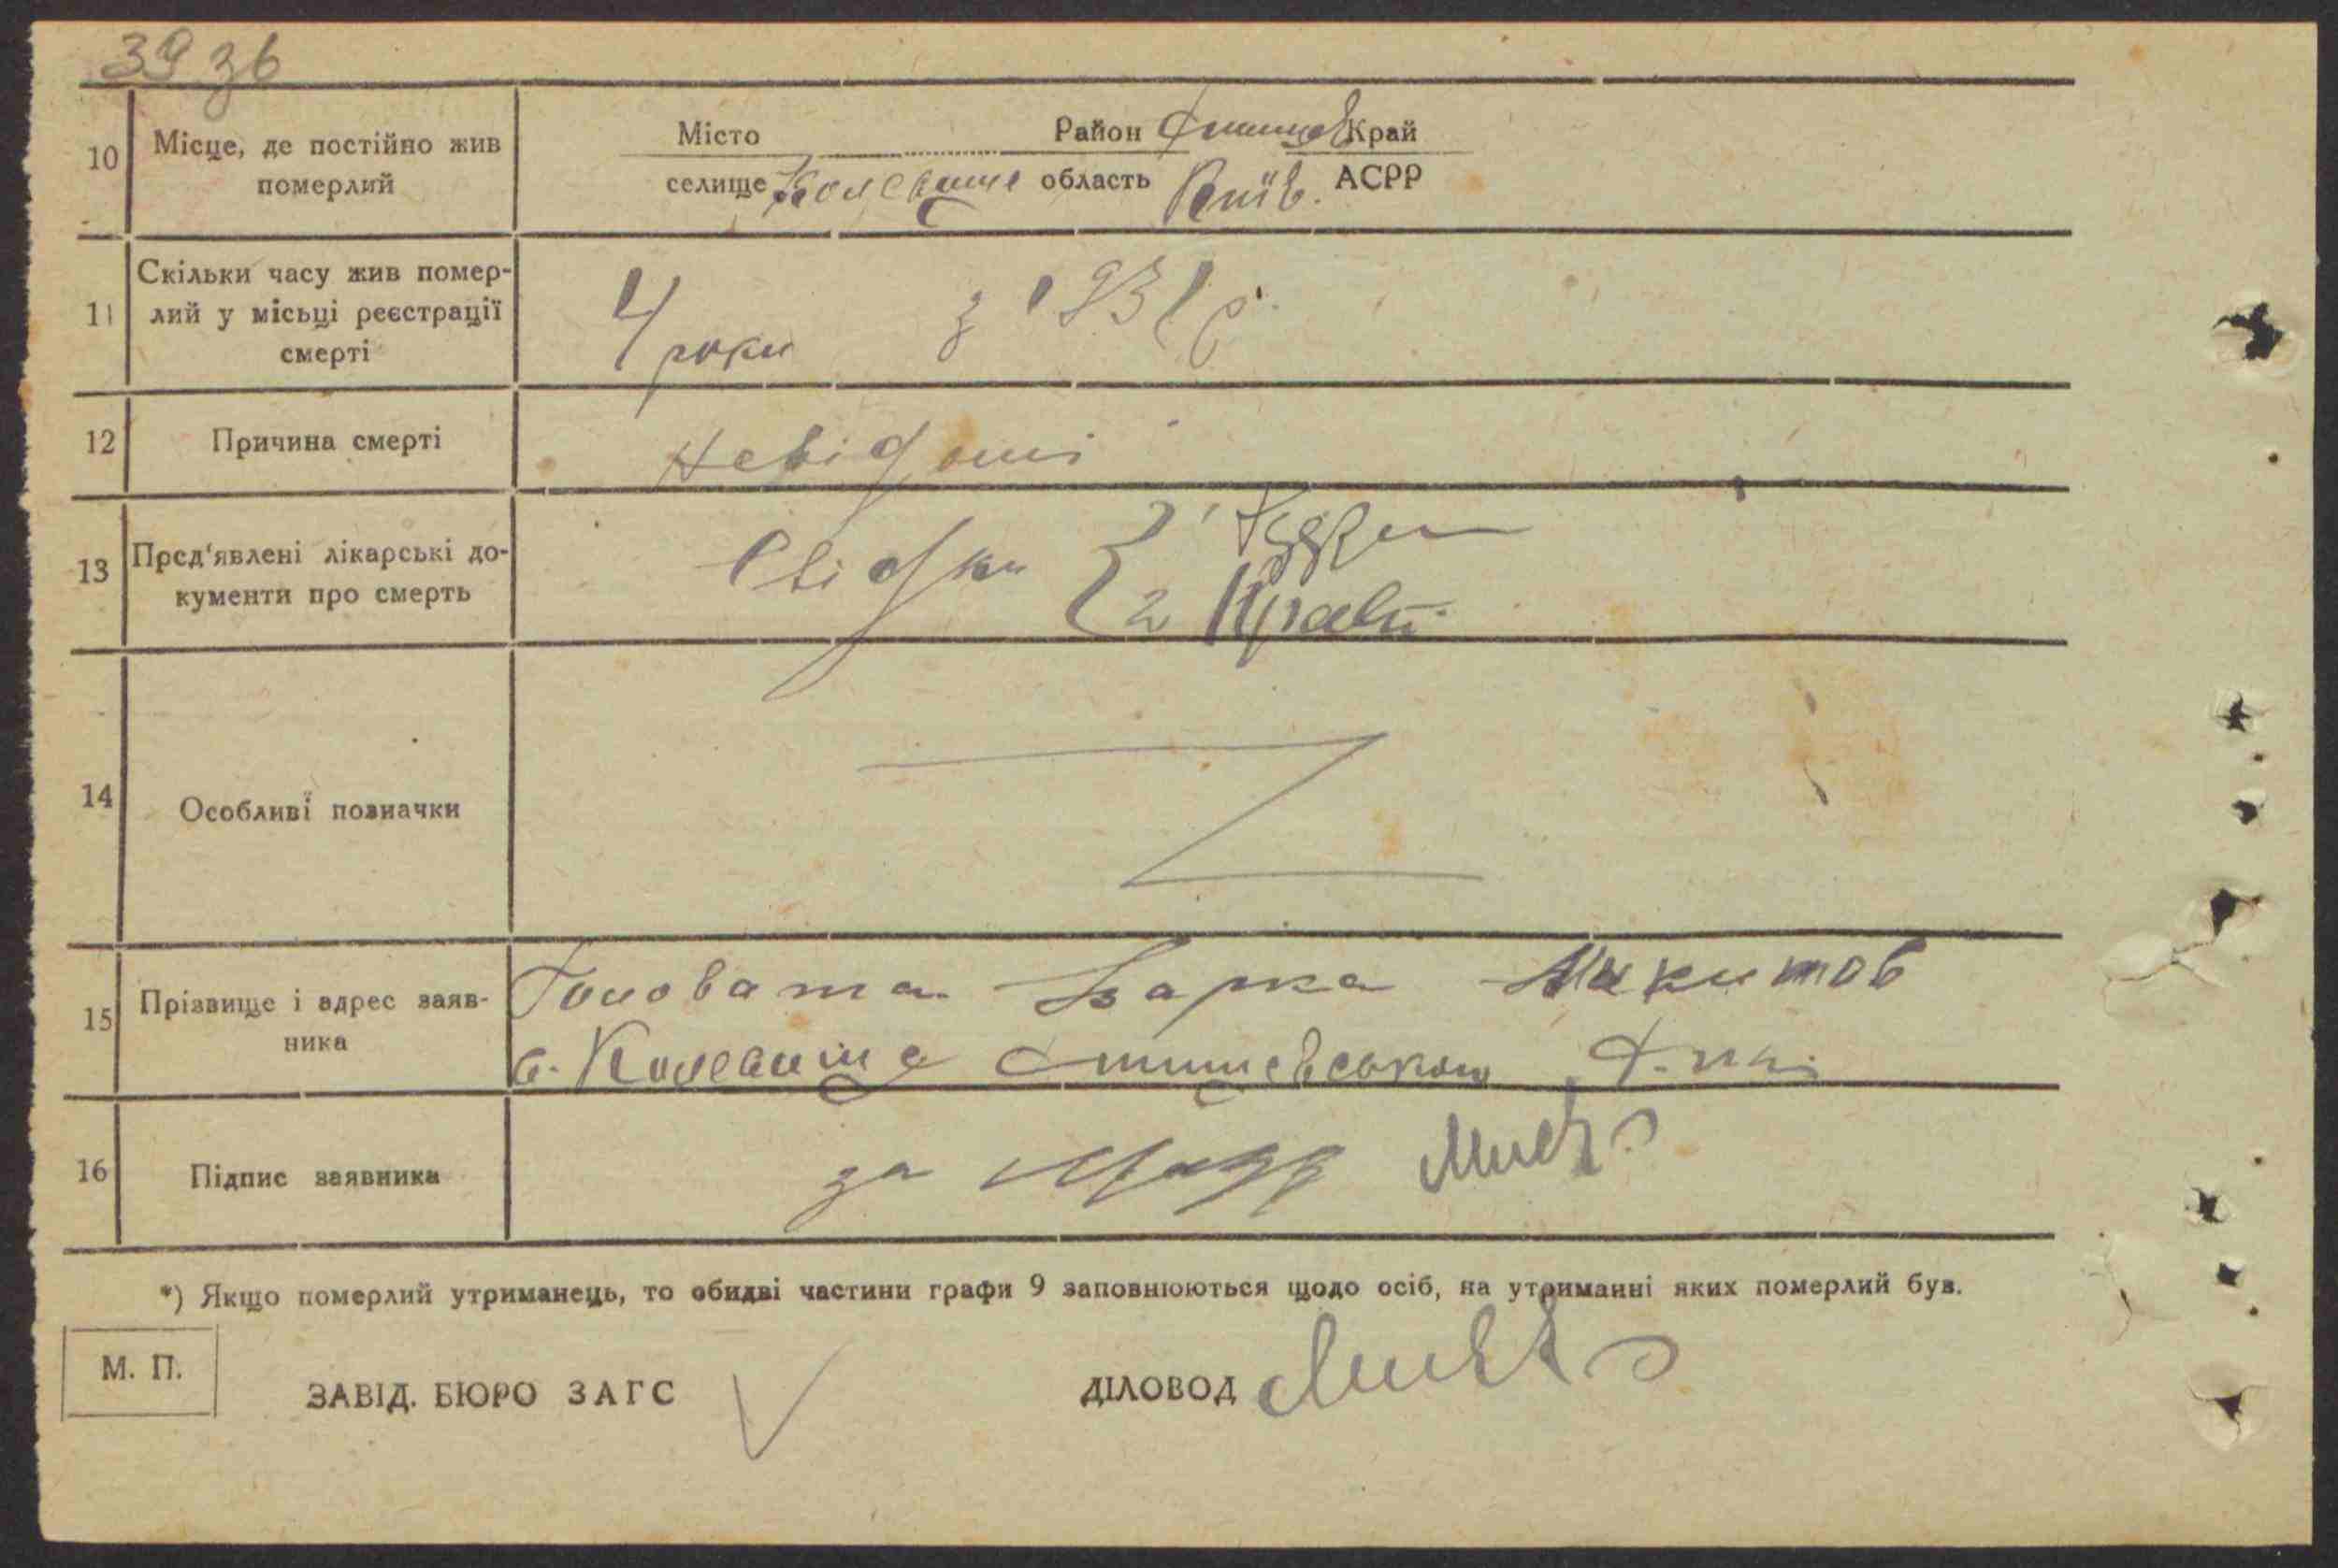 39 зв
10 Місце, де постійно жив померлий
Місто Район Край
селище область Київ. АСРР
11 Скільки часу жив помер-
лий у місьці реєстрації
смерті
4 роки з 1931 р.
12 Причина смерті
Невідомі
13 Пред'явлені лікарські до-
кументи про смерть
Свідки 1
2
14 Особливі позначки
15 Прізвище і адрес заяв-
ника
Головата Варка Микитов
с.
16 Підпис заявника
за
*) Якщо померлий утриманець, то обидві частини графи 9 заповнюються щодо осіб, на утриманні яких померлий був.
М. П.
ЗАВІД. БЮРО ЗАГС ДІЛОВОД